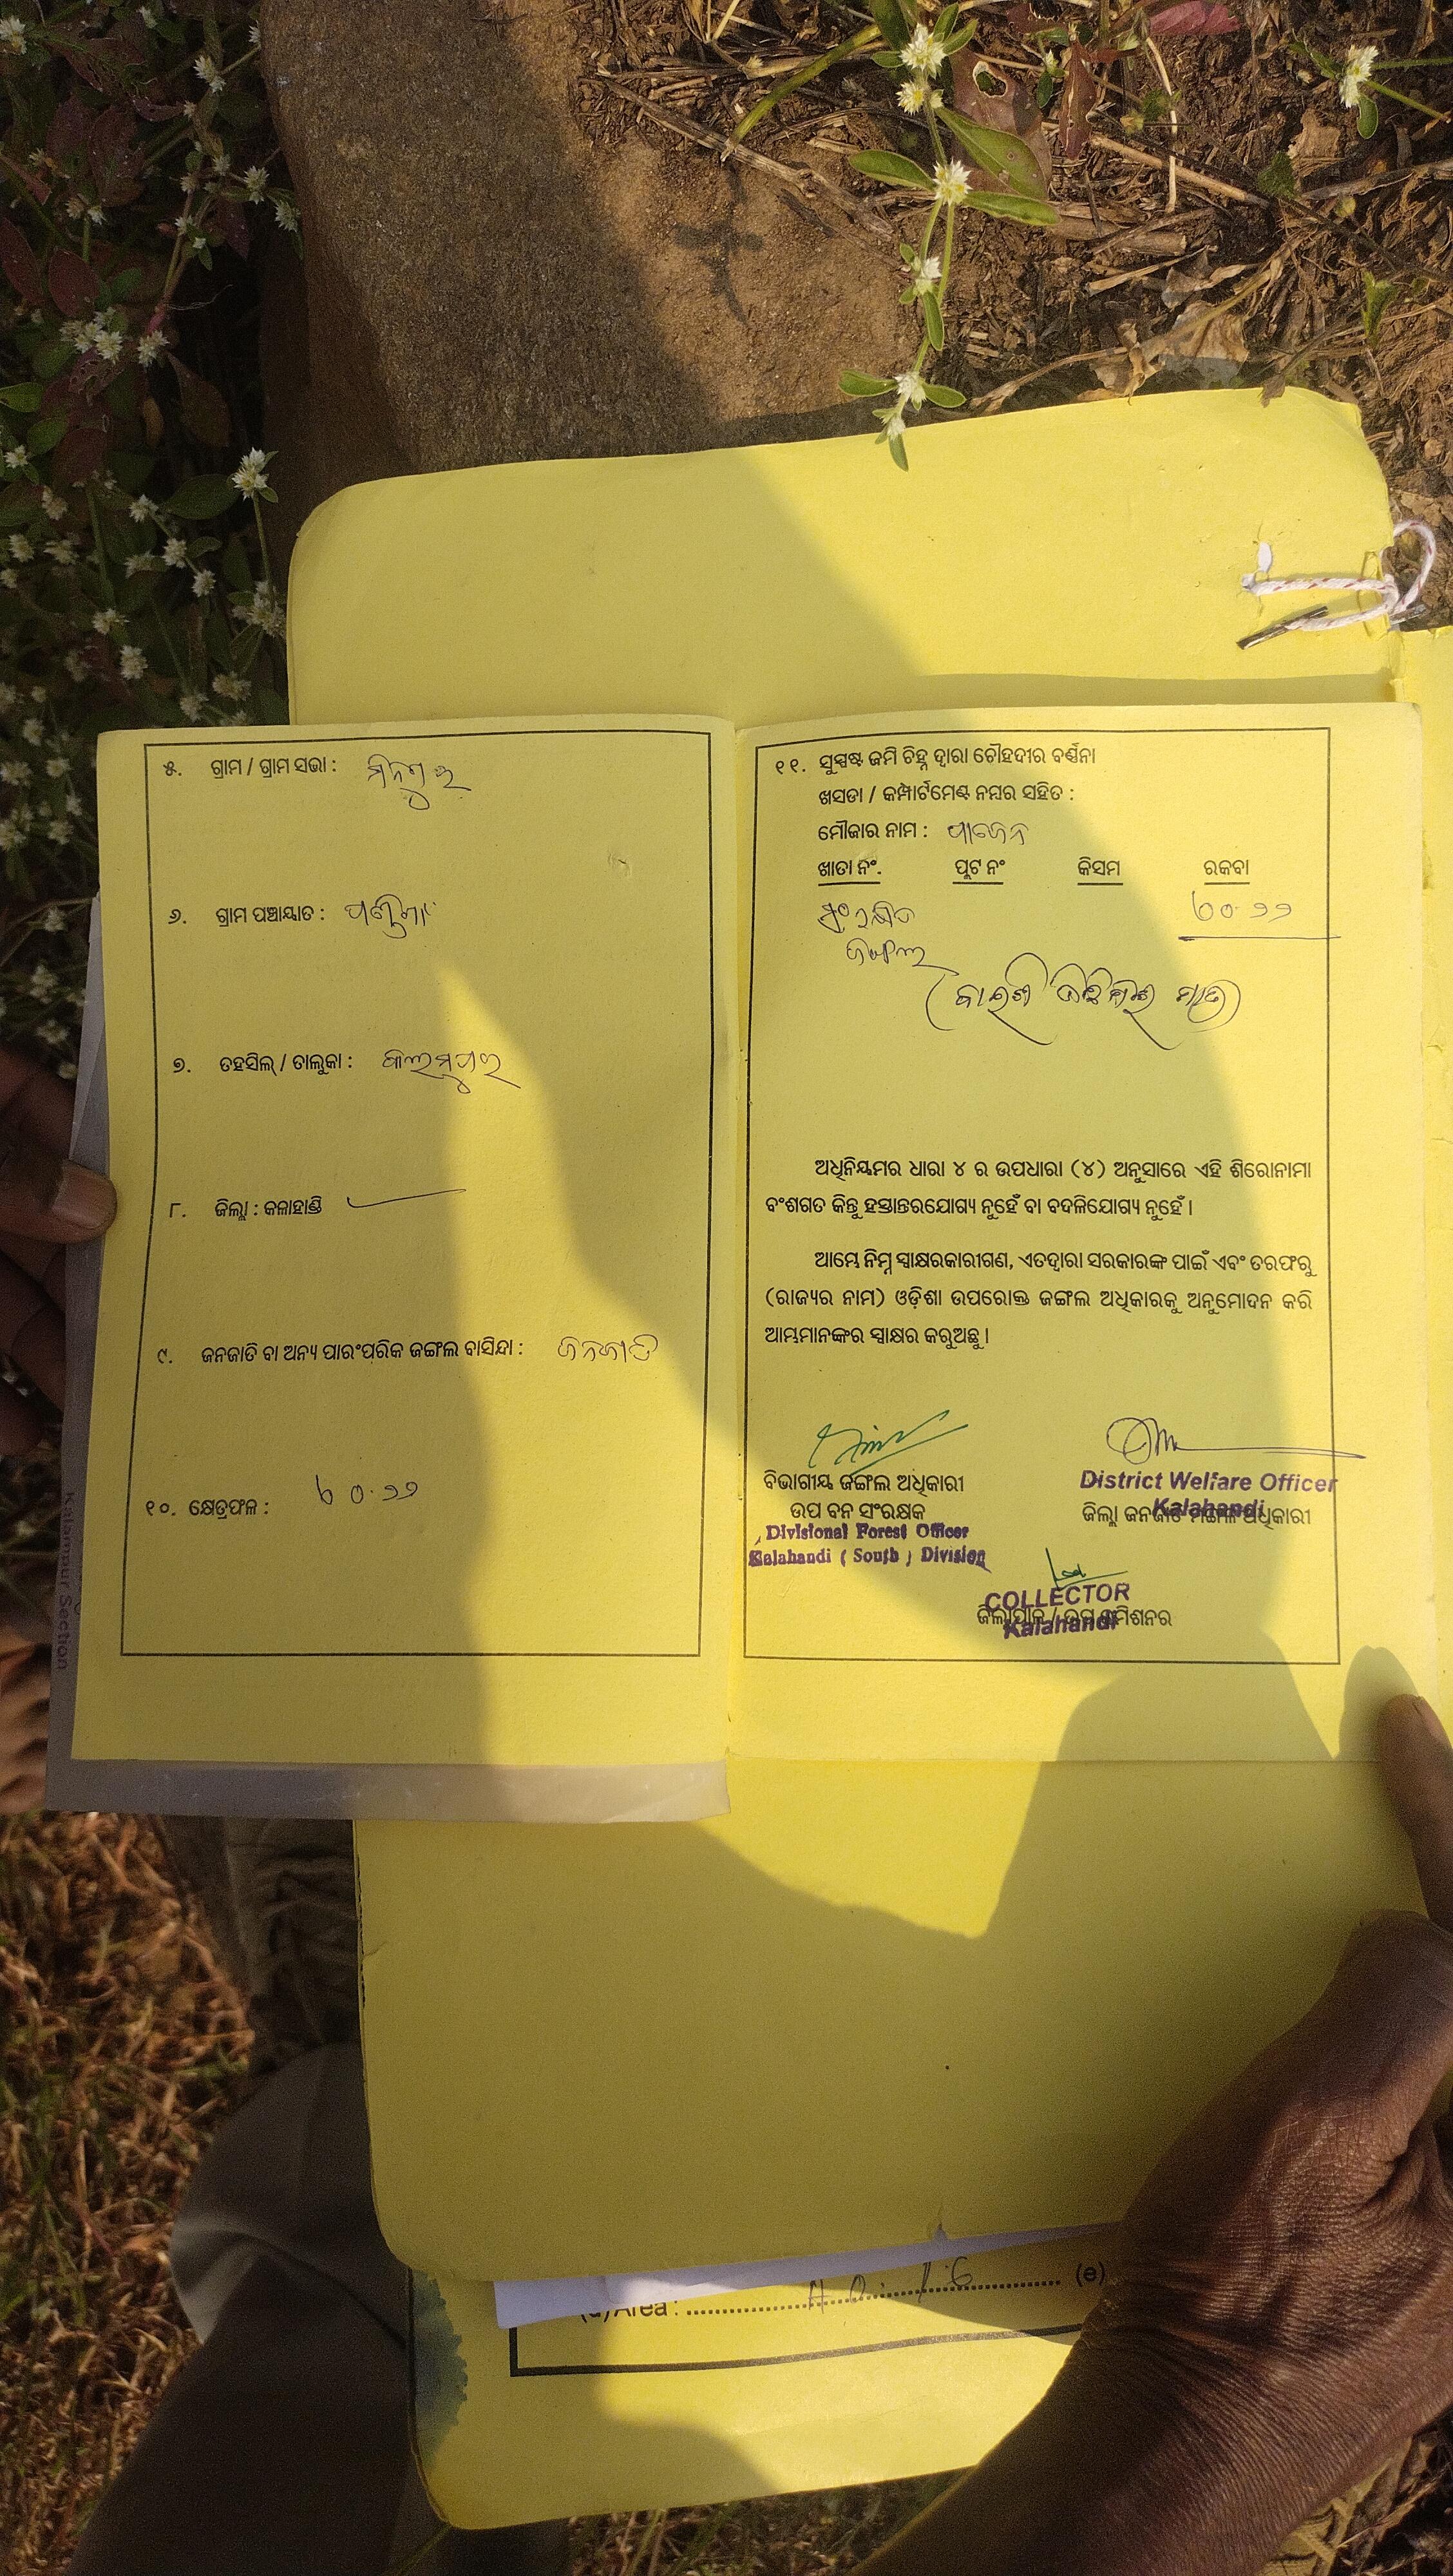 ୫. ଗ୍ରାମ / ଗ୍ରାମ ସଭା :
୬. ଗ୍ରାମ ପଞ୍ଚାୟାତ :
୭. ତହସିଲ୍ / ତାଲୁକା :
୮. ଜିଲ୍ଲା : କଳାହାଣ୍ଡି
୯. ଜନଜାତି ବା ଅନ୍ୟ ପାରଂପରିକ ଜଙ୍ଗଲ ବାସିନ୍ଦା : ଜନଜାତି
୧୦. କ୍ଷେତ୍ରଫଳ : ୦.୨୨
୧୧. ସୁସ୍ପଷ୍ଟ ଜମି ଚିହ୍ନ ଦ୍ୱାରା ଚୌହଦୀର ବର୍ଣ୍ଣନା
ଖସଡା / କମ୍ପାର୍ଟମେଣ୍ଟ ନମ୍ବର ସହିତ :
ମୌଜାର ନାମ :
ଖାତା ନଂ. ପ୍ଲଟ ନଂ କିସମ ରକବା
ସଂରକ୍ଷିତ ୦.୨୨
ଜଙ୍ଗଲ
(ବାଇଶି ଡିସିମିଲ ମାତ୍ର)
ଅଧିନିୟମର ଧାରା ୪ ର ଉପଧାରା (୪) ଅନୁସାରେ ଏହି ଶିରୋନାମା
ବଂଶଗତ କିନ୍ତୁ ହସ୍ତାନ୍ତରଯୋଗ୍ୟ ନୁହେଁ ବା ବଦଳିଯୋଗ୍ୟ ନୁହେଁ ।
ଆମ୍ଭେ ନିମ୍ନ ସ୍ୱାକ୍ଷରକାରୀଗଣ, ଏତଦ୍ୱାରା ସରକାରଙ୍କ ପାଇଁ ଏବଂ ତରଫରୁ
(ରାଜ୍ୟର ନାମ) ଓଡ଼ିଶା ଉପରୋକ୍ତ ଜଙ୍ଗଲ ଅଧିକାରକୁ ଅନୁମୋଦନ କରି
ଆମ୍ଭମାନଙ୍କର ସ୍ୱାକ୍ଷର କରୁଅଛୁ ।
ବିଭାଗୀୟ ଜଙ୍ଗଲ ଅଧିକାରୀ
ଉପ ବନ ସଂରକ୍ଷକ
Divisional Forest Officer
Kalahandi ( South ) Division
District Welfare Officer
Kalahandi
ଜିଲ୍ଲା ଜନଜାତି ମଙ୍ଗଳ ଅଧିକାରୀ
COLLECTOR
Kalahandi
ଜିଲ୍ଲାପାଳ / ଉପ କମିଶନର
Area : (e)